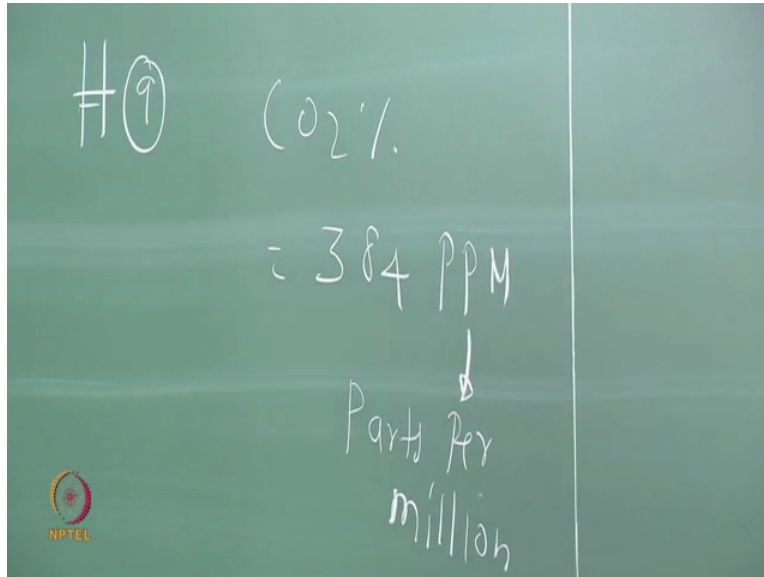 H 9
CO2 %.
= 384 PPM
Parts Per
million
NPTEL